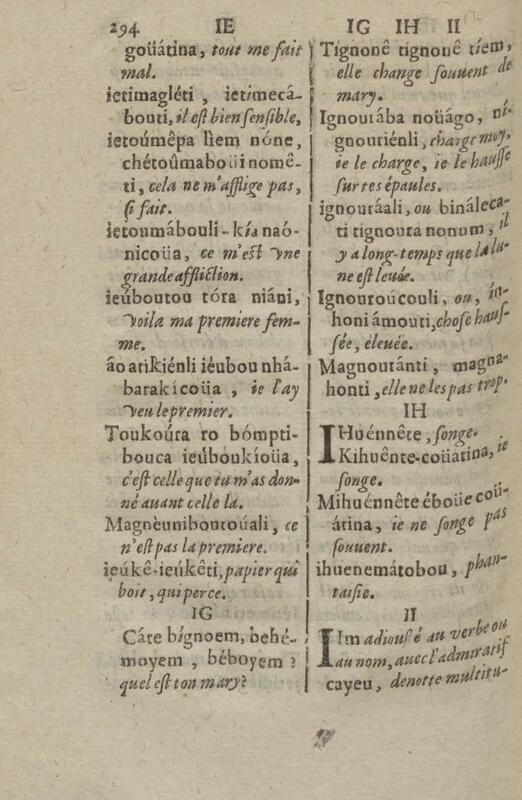 294. IE
goüátina, tout me fait
mal.
ietimagléti, ietimecá-
bouti, il est bien sensible,
ietoúmêpa lìem nóne,
chétoûmaboüi nomê-
ti, cela ne m'afflige pas,
si fait.
ietoumábouli-kía naó-
nicoüa, ce m'est vne
grande affliction.
ieúboutou tóra niáni,
voila ma premiere fem-
me.
áo arikiénli iéubou nhá-
barakícoüa, ie l'ay
veu le premier.
Toukoúra ro bómpti-
bouca ieúboukíoüa,
c'est celle que tu m'as don-
né auant celle la.
Magnèuniboutoúali, ce
n'est pas la premiere.
ieúkê-ieúkêti, papier qui
boit, qui perce.
IG
Cáte bígnoem, behé-
moyem, béboyem ?
quel est ton mary?
IG IH II
Tignonê tignonê tíem,
elle change souuent de
mary.
Ignoutába noüágo, ni-
gnoutiénli, charge moy,
ie le charge, ie le hausse
sur tes épaules.
ignoutáali, ou bináleca-
ti tignouta nonum, il
y a long-temps que la lu-
ne est leuée.
Ignouroúcouli, ou, in-
honi ámouti, chose haus-
sée, éleuée.
Magnoutánti, magna-
honti, elle ne les pas trop.
IH
IHuénnête, songe.
Kihuênte-coüátina, ie
songe.
Mihuénnête éboüe coü-
átina, ie ne songe pas
souuent.
ihuenemátobou, phan-
taisie.
II
IIm adiousté au verbe ou
au nom, auec l'admiratif
cayeu, denotte multitu-